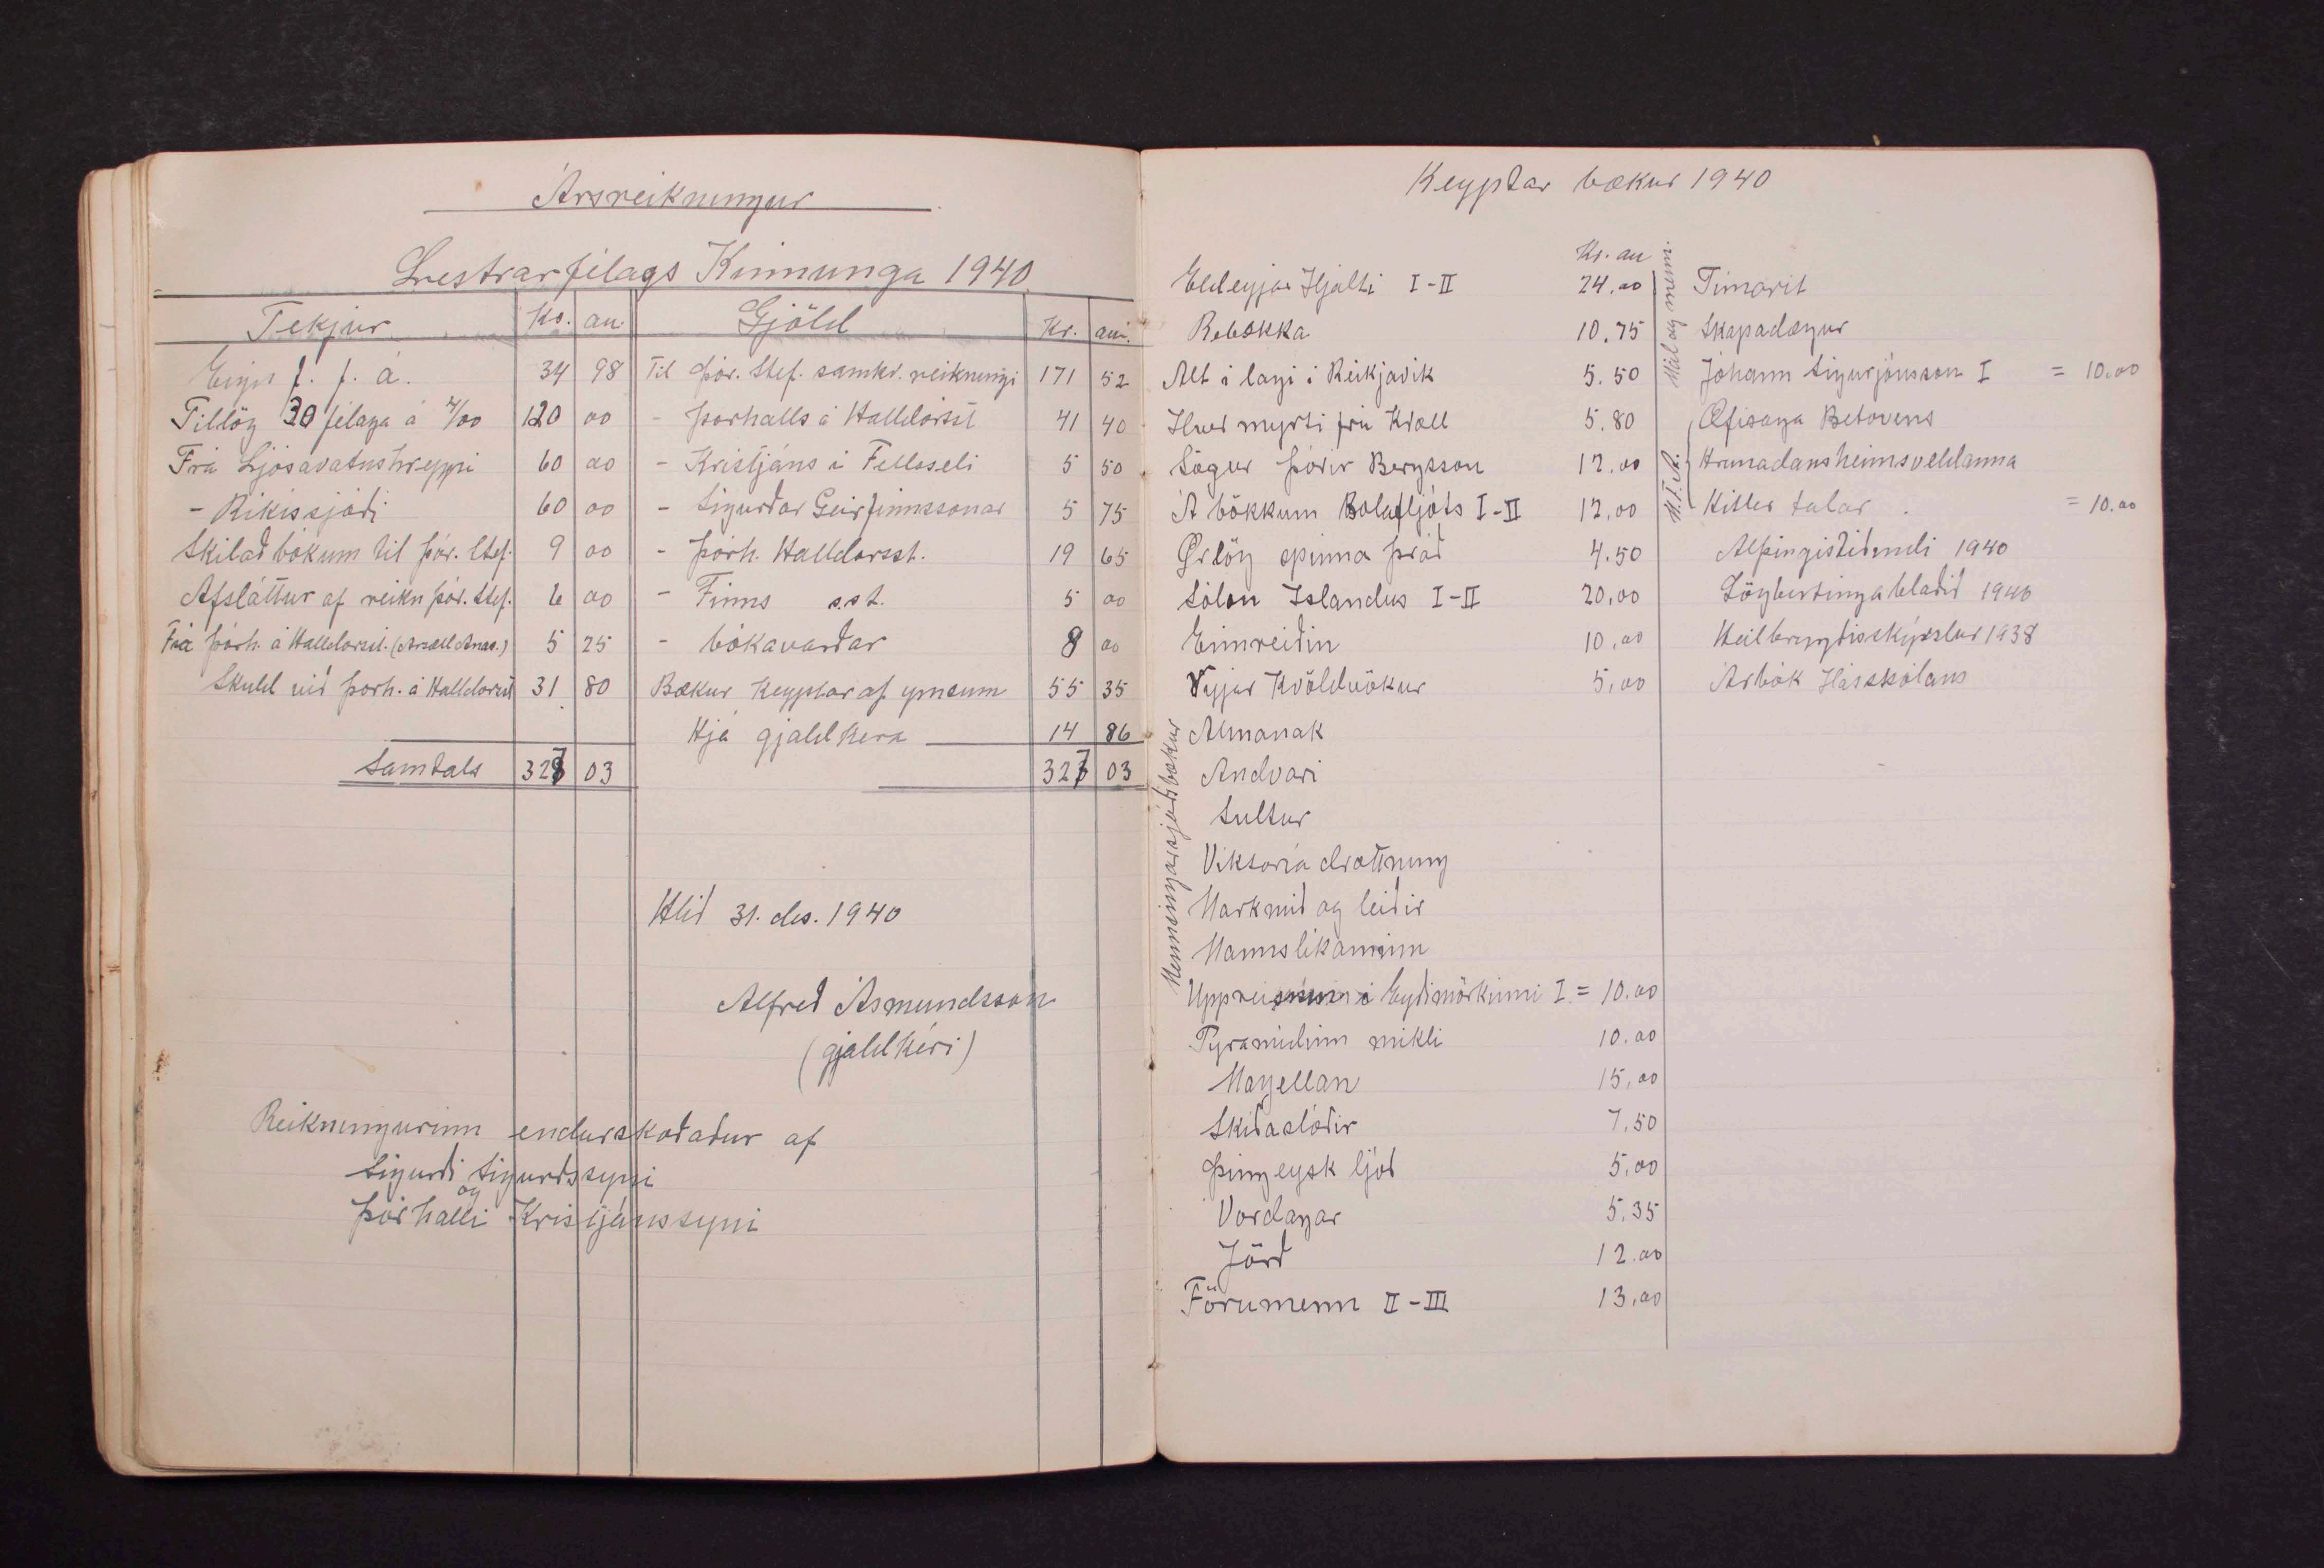 Ársreikningur
Lestrarfélags Kinnunga 1940
Tekjur Kr. au. Gjöld Kr. au.
Eign f. f. á. 34 98 Til Þór. Stef. samkv. reikningi 171 52
Tillög 30 félaga á 4/00 120 00 - Þorhalls á Halldórsst 41 40
Frá Ljósavatnshreppi 60 00 - Kristjáns í Fellsseli 5 50
- Ríkissjóði 60 00 - Sigurðar Geirfinnssonar 5 75
Skilað bókum til Þór. Stef. 9 00 - Þórh. Halldorsst. 19 65
Afsláttur af reikn Þór. Stef. 6 00 - Finns s.st. 5 00
Frá Þórh. á Halldorsst. (Ársæll Árnas.) 5 25 - bókavarðar 8 00
Skuld við Þorh. á Halldorsst 31 80 Bækur keyptar af ymsum 55 35
Hjá gjaldkera 14 86
Samtals 327 03 327 03
Hlíð 31. des. 1940
Alfreð Ásmundsson
(gjaldkéri)
Reikningurinn endurskoðaður af
Sigurði Sigurðssyni
og
Þórhalli Kristjánssyni
Keyptar bækur 1940
Kr. au
Eldeyjar Hjalti I-II 24.00
Rebekka 10.75
Alt í lagi í Reikjavík 5.50
Hver myrti frú Kroll 5.80
Sögur Þórir Bergsson 12.00
Á bökkum Bolafljóts I-II 12.00
Örlög spinna þráð 4.50
Sólon Islandus I-II 20.00
Eimreiðin 10.00
Nýjar Kvöldvökur 5.00
Menningarsjóðsbækur
Almanak
Andvari
Sultur
Viktoría drottning
Markmið og leiðir
Mannslíkaminn
Uppreisnin í Eyðimörkinni I. = 10.00
Pyramidinn mikli 10.00
Magellan 15.00
Skíðaslóðir 7.50
Þingeysk ljóð 5.00
Vordagar 5.35
Jörð 12.00
Förumenn II-III 13.00
Mál og menni.
Tímarit
Skapadægur
Jóhann Sigurjónsson I = 10.00
M.F.A.
Æfisaga Betovens
Hrunadansheimsveldanna
Hitler talar = 10.00
Alþingistiðindi 1940
Lögbirtingablaðið 1940
Heilbrygðisskýrslur 1938
Árbók Háskólans